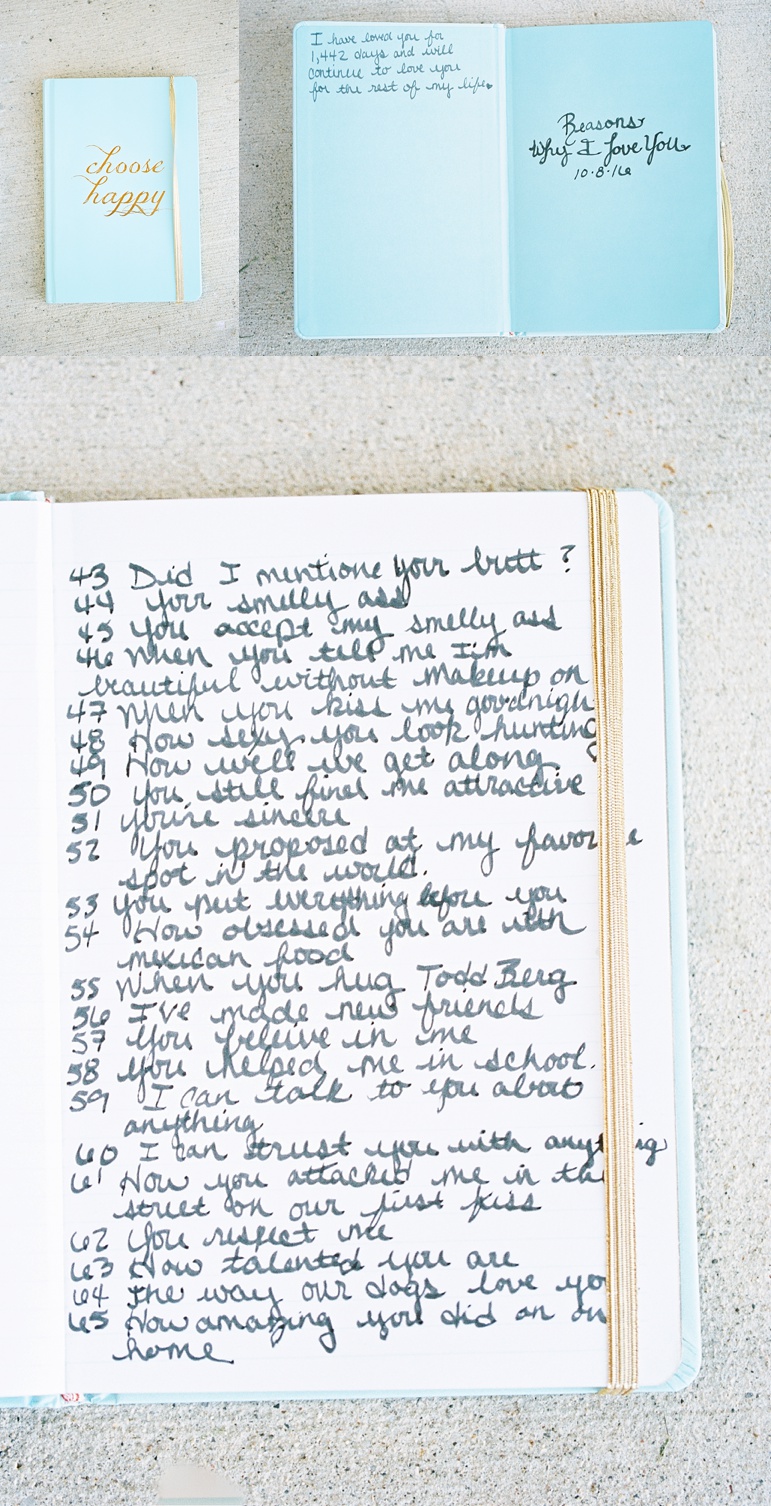 choose
happy
I have loved you for
1,442 days and will
continue to love you
for the rest of my life
Reasons
Why I Love You
10.8.16
43 Did I mentione your butt ?
44 your smelly ass
45 you accept my smelly ass
46 When you tell me I'm
beautiful without makeup on
47 When you kiss me goodnigh
48 How sexy you look hunting
49 How well we get along
50 you still find me attractive
51 you're sincere
52 You proposed at my favor e
spot in the world.
53 you put everything before you
54 How obsessed you are with
mexican food
55 When you hug Todd Berg
56 I've made new friends
57 You beleive in me
58 you helped me in school.
59 I can talk to you about
anything
60 I can trust you with anyt ig
61 How you attacked me in the
street on our first kiss
62 You respect me
63 How talented you are
64 The way our dogs love yo
65 How amazing you did on ou
home